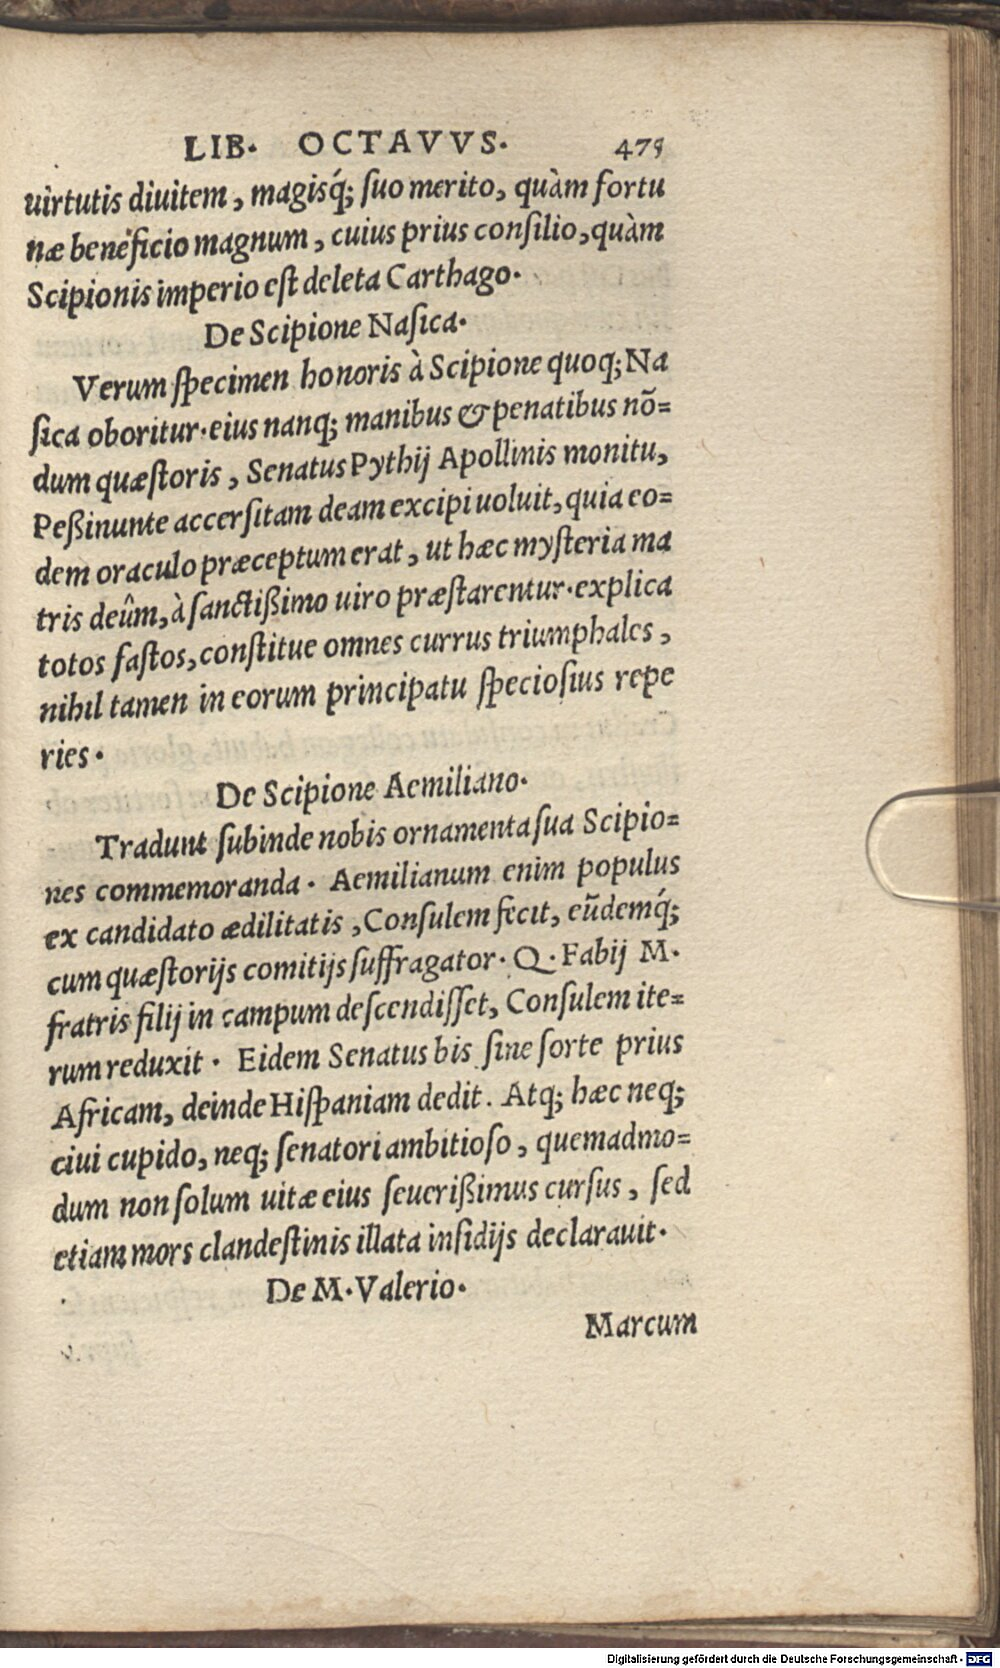 LIB. OCTAVVS. 475
uirtutis diuitem, magisq́; suo merito, quàm fortu
næ beneficio magnum, cuius prius consilio, quàm
Scipionis imperio est deleta Carthago.
De Scipione Nasica.
Verum specimen honoris à Scipione quoq; Na
sica oboritur. eius nanq; manibus & penatibus nō=
dum quæstoris, Senatus Pythij Apollinis monitu,
Peßinunte accersitam deam excipi uoluit, quia eo=
dem oraculo præceptum erat, ut hæc mysteria ma
tris deûm, à sanctißimo uiro præstarentur. explica
totos fastos, constitue omnes currus triumphales,
nihil tamen in eorum principatu speciosius repe
ries.
De Scipione Aemiliano.
Tradunt subinde nobis ornamenta sua Scipio=
nes commemoranda. Aemilianum enim populus
ex candidato ædilitatis, Consulem fecit, eūdemq́;
cum quæstorijs comitijs suffragator. Q. Fabij M.
fratris filij in campum descendisset, Consulem ite=
rum reduxit. Eidem Senatus bis sine sorte prius
Africam, deinde Hispaniam dedit. Atq; hæc neq;
ciui cupido, neq; senatori ambitioso, quemadmo=
dum non solum uitæ eius seuerißimus cursus, sed
etiam mors clandestinis illata insidijs declarauit.
De M. Valerio.
Marcum
Digitalisierung gefördert durch die Deutsche Forschungsgemeinschaft - DFG